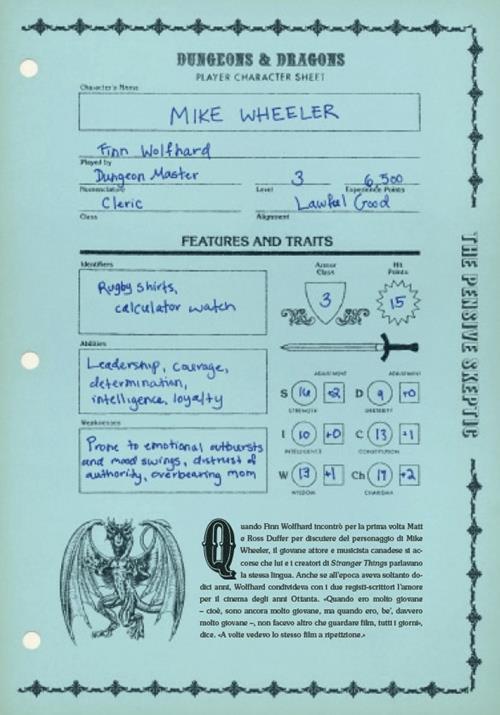 DUNGEONS & DRAGONS
PLAYER CHARACTER SHEET
Character's Name
MIKE WHEELER
Finn Wolfhard
Played by
Dungeon Master
3
6,500
Nomenclature
Level
Experience Points
Cleric
Lawful Good
Class
Alignment
FEATURES AND TRAITS
Identifiers
Rugby shirts,
calculator watch
Armor
Class
3
Hit
Points
15
Abilities
Leadership, courage,
determination,
intelligence, loyalty
Weaknesses
Prone to emotional outbursts
and mood swings, distrust of
authority, overbearing mom
ADJUSTMENT
ADJUSTMENT
S 16 +2 D 9 +0
STRENGTH
DEXTERITY
I 10 +0 C 13 +1
INTELLIGENCE
CONSTITUTION
W 13 +1 Ch 17 +2
WISDOM
CHARISMA
THE PENSIVE SKEPTIC
Quando Finn Wolfhard incontrò per la prima volta Matt
e Ross Duffer per discutere del personaggio di Mike
Wheeler, il giovane attore e musicista canadese si ac-
corse che lui e i creatori di Stranger Things parlavano
la stessa lingua. Anche se all'epoca aveva soltanto do-
dici anni, Wolfhard condivideva con i due registi-scrittori l'amore
per il cinema degli anni Ottanta. «Quando ero molto giovane
– cioè, sono ancora molto giovane, ma quando ero, be', davvero
molto giovane –, non facevo altro che guardare film, tutti i giorni»,
dice. «A volte vedevo lo stesso film a ripetizione.»